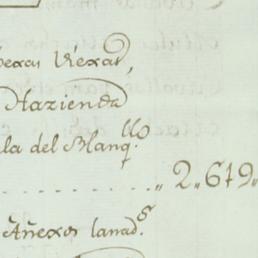 Viexas,
Hazienda
la del Blanq.llo
2„649„
Añexos lanad.s